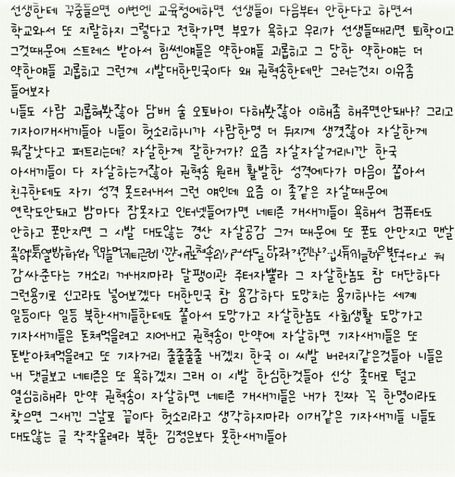 선생한테 꾸중들으면 이번엔 교육청에하면 선생들이 다음부터 안한다고 하면서
학교와서 또 지랄하지 그렇다고 전학가면 부모가 욕하고 우리가 선생들때리면 퇴학이고
그것때문에 스트레스 받아서 힘쎈얘들은 약한얘들 괴롭히고 그 당한 약한얘는 더
약한얘들 괴롭히고 그런게 시발대한민국이다 왜 권혁송한테만 그러는건지 이유좀
들어보자
니들도 사람 괴롭혀봣잖아 담배 술 오토바이 다해봣잖아 이해좀 해주면안돼나? 그리고
기자이개새끼들아 니들이 헛소리하니까 사람한명 더 뒤지게 생겼잖아 자살한게
뭐잘낫다고 퍼트리는데? 자살한게 잘한거가? 요즘 자살자살거리니깐 한국
아새끼들이 다 자살하는거잖아 권혁송 원래 활발한 성격에다가 마음이 쫍아서
친구한테도 자기 성격 못드러내서 그런 얘인데 요즘 이 좇같은 자살때문에
연락도안돼고 밤마다 잠못자고 인터넷들어가면 네티즌 개새끼들이 욕해서 컴퓨터도
안하고 폰만지면 그 시발 대도않는 경산 자살공감 그거 때문에 또 폰도 안만지고 맨날
감싸준다는 개소리 꺼내지마라 달팽이관 주터자뿔라 그 자살한놈도 참 대단하다
그런용기로 신고라도 넣어보겠다 대한민국 참 용감하다 도망치는 용기하나는 세계
일등이다 일등 북한새끼들한테도 쫄아서 도망가고 자살한놈도 사회생활 도망가고
기자새끼들은 돈쳐먹을려고 지어내고 권혁송이 만약에 자살하면 기자새끼들은 또
돈받아쳐먹을려고 또 기자거리 줄줄줄줄 내겠지 한국 이 씨발 버러지같은것들아 니들은
내 댓글보고 네티즌은 또 욕하겠지 그래 이 시발 한심한것들아 신상 좇대로 털고
열심히해라 만약 권혁송이 자살하면 네티즌 개새끼들은 내가 진짜 꼭 한명이라도
찾으면 그새낀 그날로 끝이다 헛소리라고 생각하지마라 이개같은 기자새끼들 니들도
대도않는 글 작작올려라 북한 김정은보다 못한새끼들아